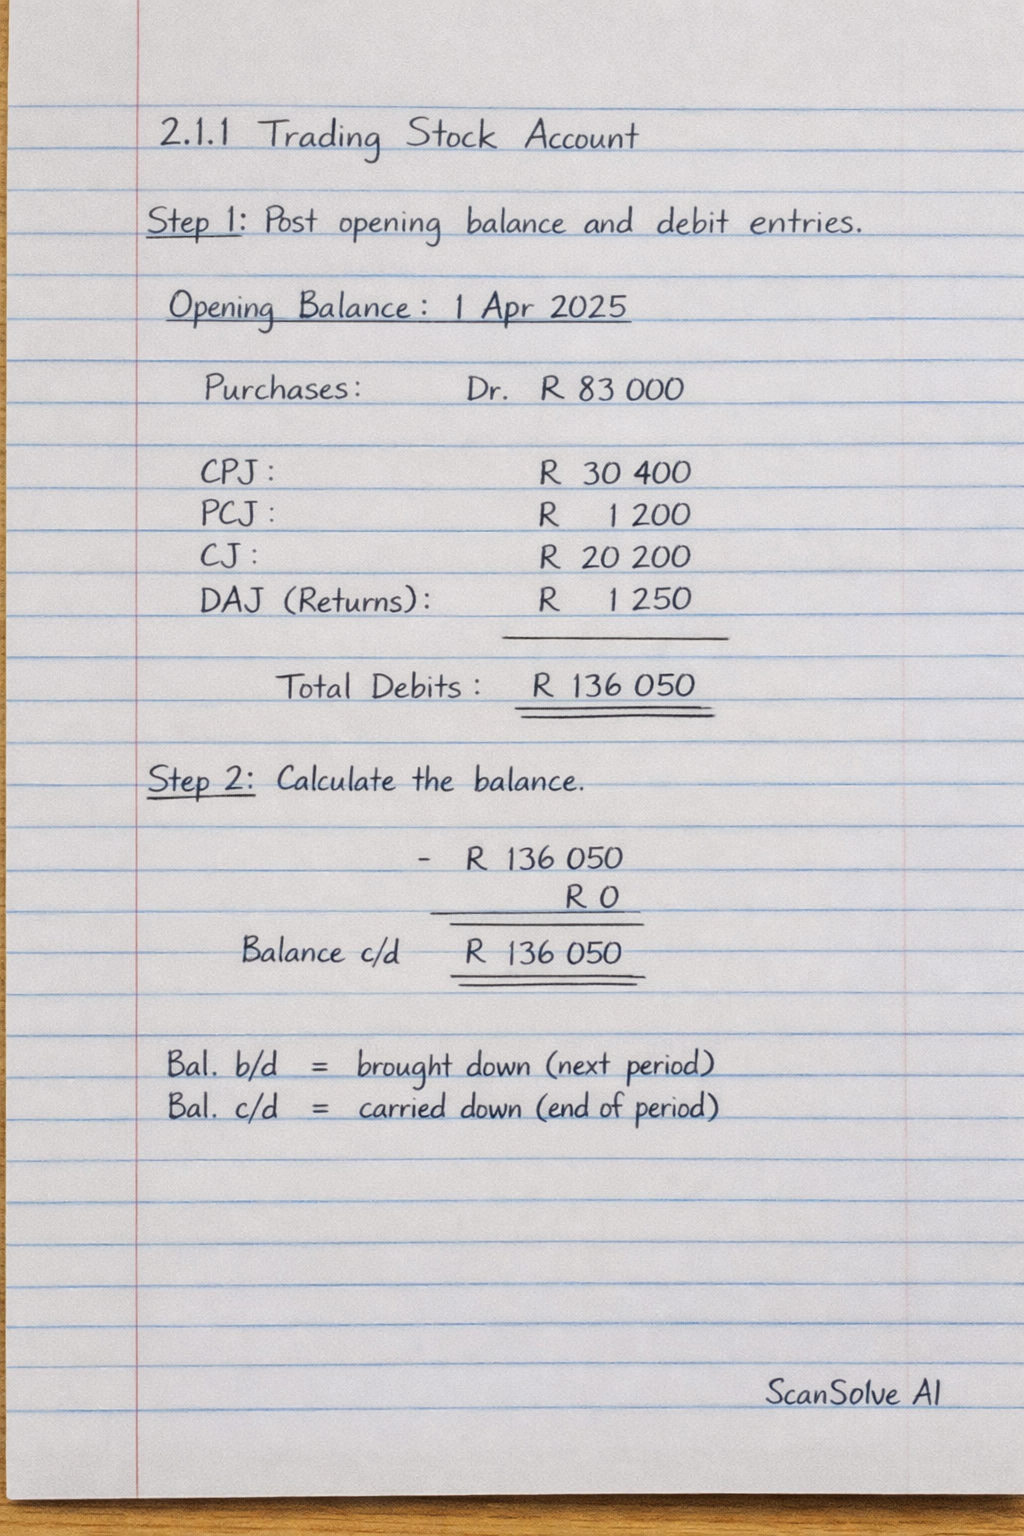 2.1.1 Trading Stock Account
Step 1: Post opening balance and debit entries.
Opening Balance: 1 Apr 2025
Purchases: Dr. R 83 000
CPJ: R 30 400
PCJ: R 1 200
CJ: R 20 200
DAJ (Returns): R 1 250
Total Debits: R 136 050
Step 2: Calculate the balance.
- R 136 050
R 0
Balance c/d R 136 050
Bal. b/d = brought down (next period)
Bal. c/d = carried down (end of period)
ScanSolve AI